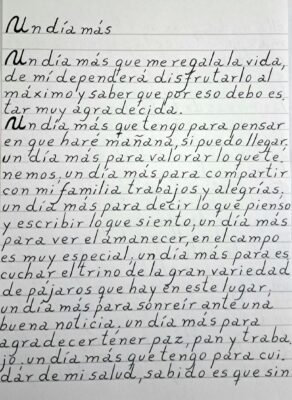 Un día más
Un día más que me regala la vida,
de mí dependerá disfrutarlo al
máximo y saber que por eso debo es
tar muy agradecida.
Un día más que tengo para pensar
en que haré mañana, si puedo llegar,
un día más para valorar lo que te
nemos, un día más para compartir
con mi familia trabajos y alegrías,
un día más para decir lo que pienso
y escribir lo que siento, un día más
para ver el amanecer, en el campo
es muy especial, un día más para es
cuchar el trino de la gran variedad
de pájaros que hay en este lugar,
un día más para sonreír ante una
buena noticia, un día más para
agradecer tener paz, pan y traba
jo, un día más que tengo para cui
dár de mi salud, sabido es que sin